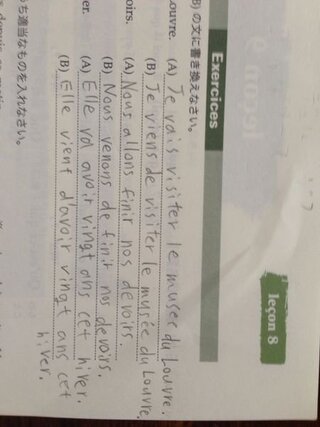 leçon 8
Exercices
B) の文に書き換えなさい。
Louvre. (A) Je vais visiter le musée du Louvre.
(B) Je viens de visiter le musée du Louvre.
oirs. (A) Nous allons finir nos devoirs.
(B) Nous venons de finir nos devoirs.
er. (A) Elle va avoir vingt ans cet hiver.
(B) Elle vient d'avoir vingt ans cet
hiver.
ち適当なものを入れなさい。